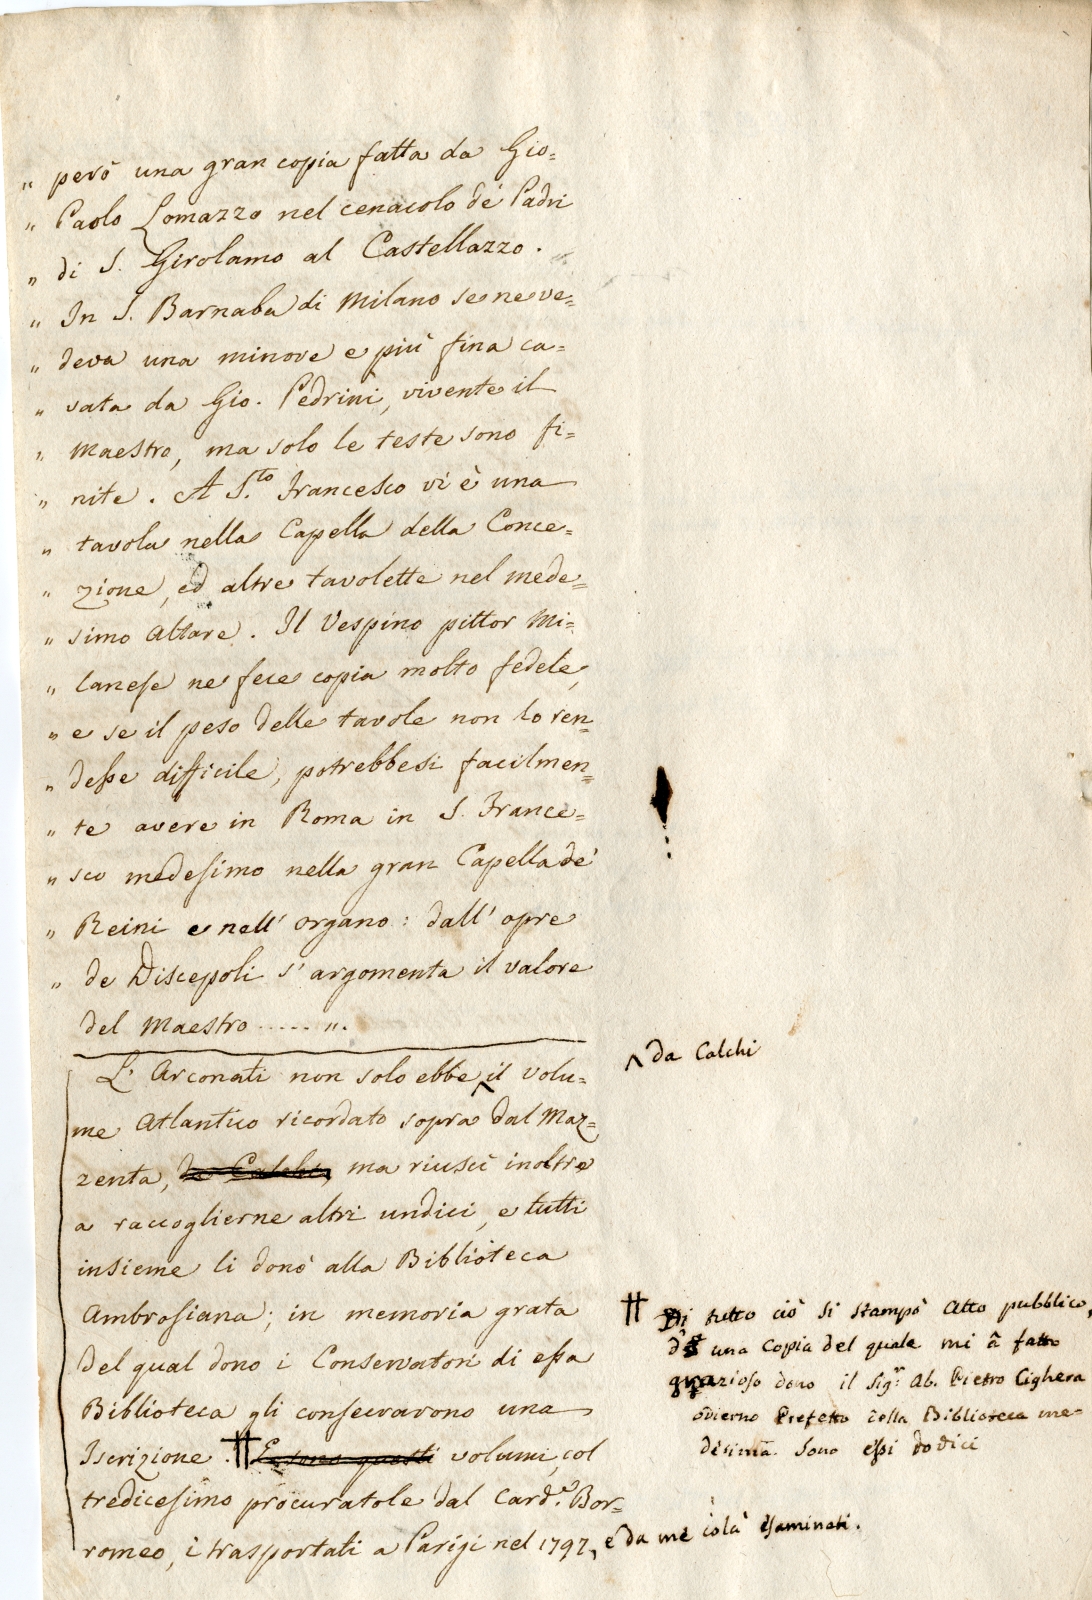 " però una gran copia fatta da Gio=
" Paolo Lomazzo nel cenacolo de' Padri
" di S. Girolamo al Castellazzo.
" In S. Barnaba di Milano se ne ve=
" deva una minore e più fina ca=
" vata da Gio. Pedrini, vivente il
" Maestro, ma solo le teste sono fi=
" nite. A S.to Francesco vi è una
" tavola nella Capella della Conce=
" zione, ed altre tavolette nel mede=
" simo Altare. Il Vespino pittor Mi=
" lanese ne fece copia molto fedele,
" e se il peso delle tavole non lo ren=
" desse difficile, potrebbesi facilmen=
" te avere in Roma in S. France=
" sco medesimo nella gran Capella de'
" Reini e nell' organo: dall' opre
" de Discepoli s' argomenta il valore
del Maestro ...... ".
L' Arconati non solo ebbe ^ il volu=
^ da Calchi
me Atlantico ricordato sopra dal Maz=
zenta, da Calchi, ma riuscì inoltre
a raccoglierne altri undici, e tutti
insieme li donò alla Biblioteca
Ambrosiana; in memoria grata
del qual dono i Conservatori di essa
Biblioteca gli consecrarono una
Iscrizione. ‡ E sono questi volumi, col
‡ Di tutto ciò si stampò Atto pubblico,
d' una copia del quale mi à fatto
grazioso dono il Sig.r Ab. Pietro Cighera
odierno Prefetto della Biblioteca me=
desima. Sono essi dodici
tredicesimo procuratole dal Card.e Bor=
romeo, i trasportati a Parigi nel 1797, e da me colà esaminati.